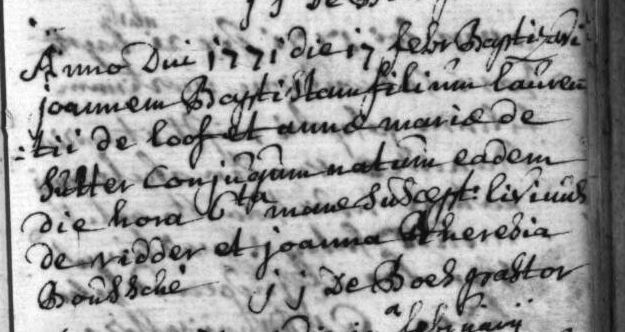 j j De
Anno Dni 1771 die 17 febr Baptizavi
joannem Baptistam filium lauren
tii de loof et annæ mariæ de
Sutter Conjugum natum eadem
die hora 6ta mane Suscept: livinus
de ridder et joanna Theresia
Boussché j j De Boes pastor